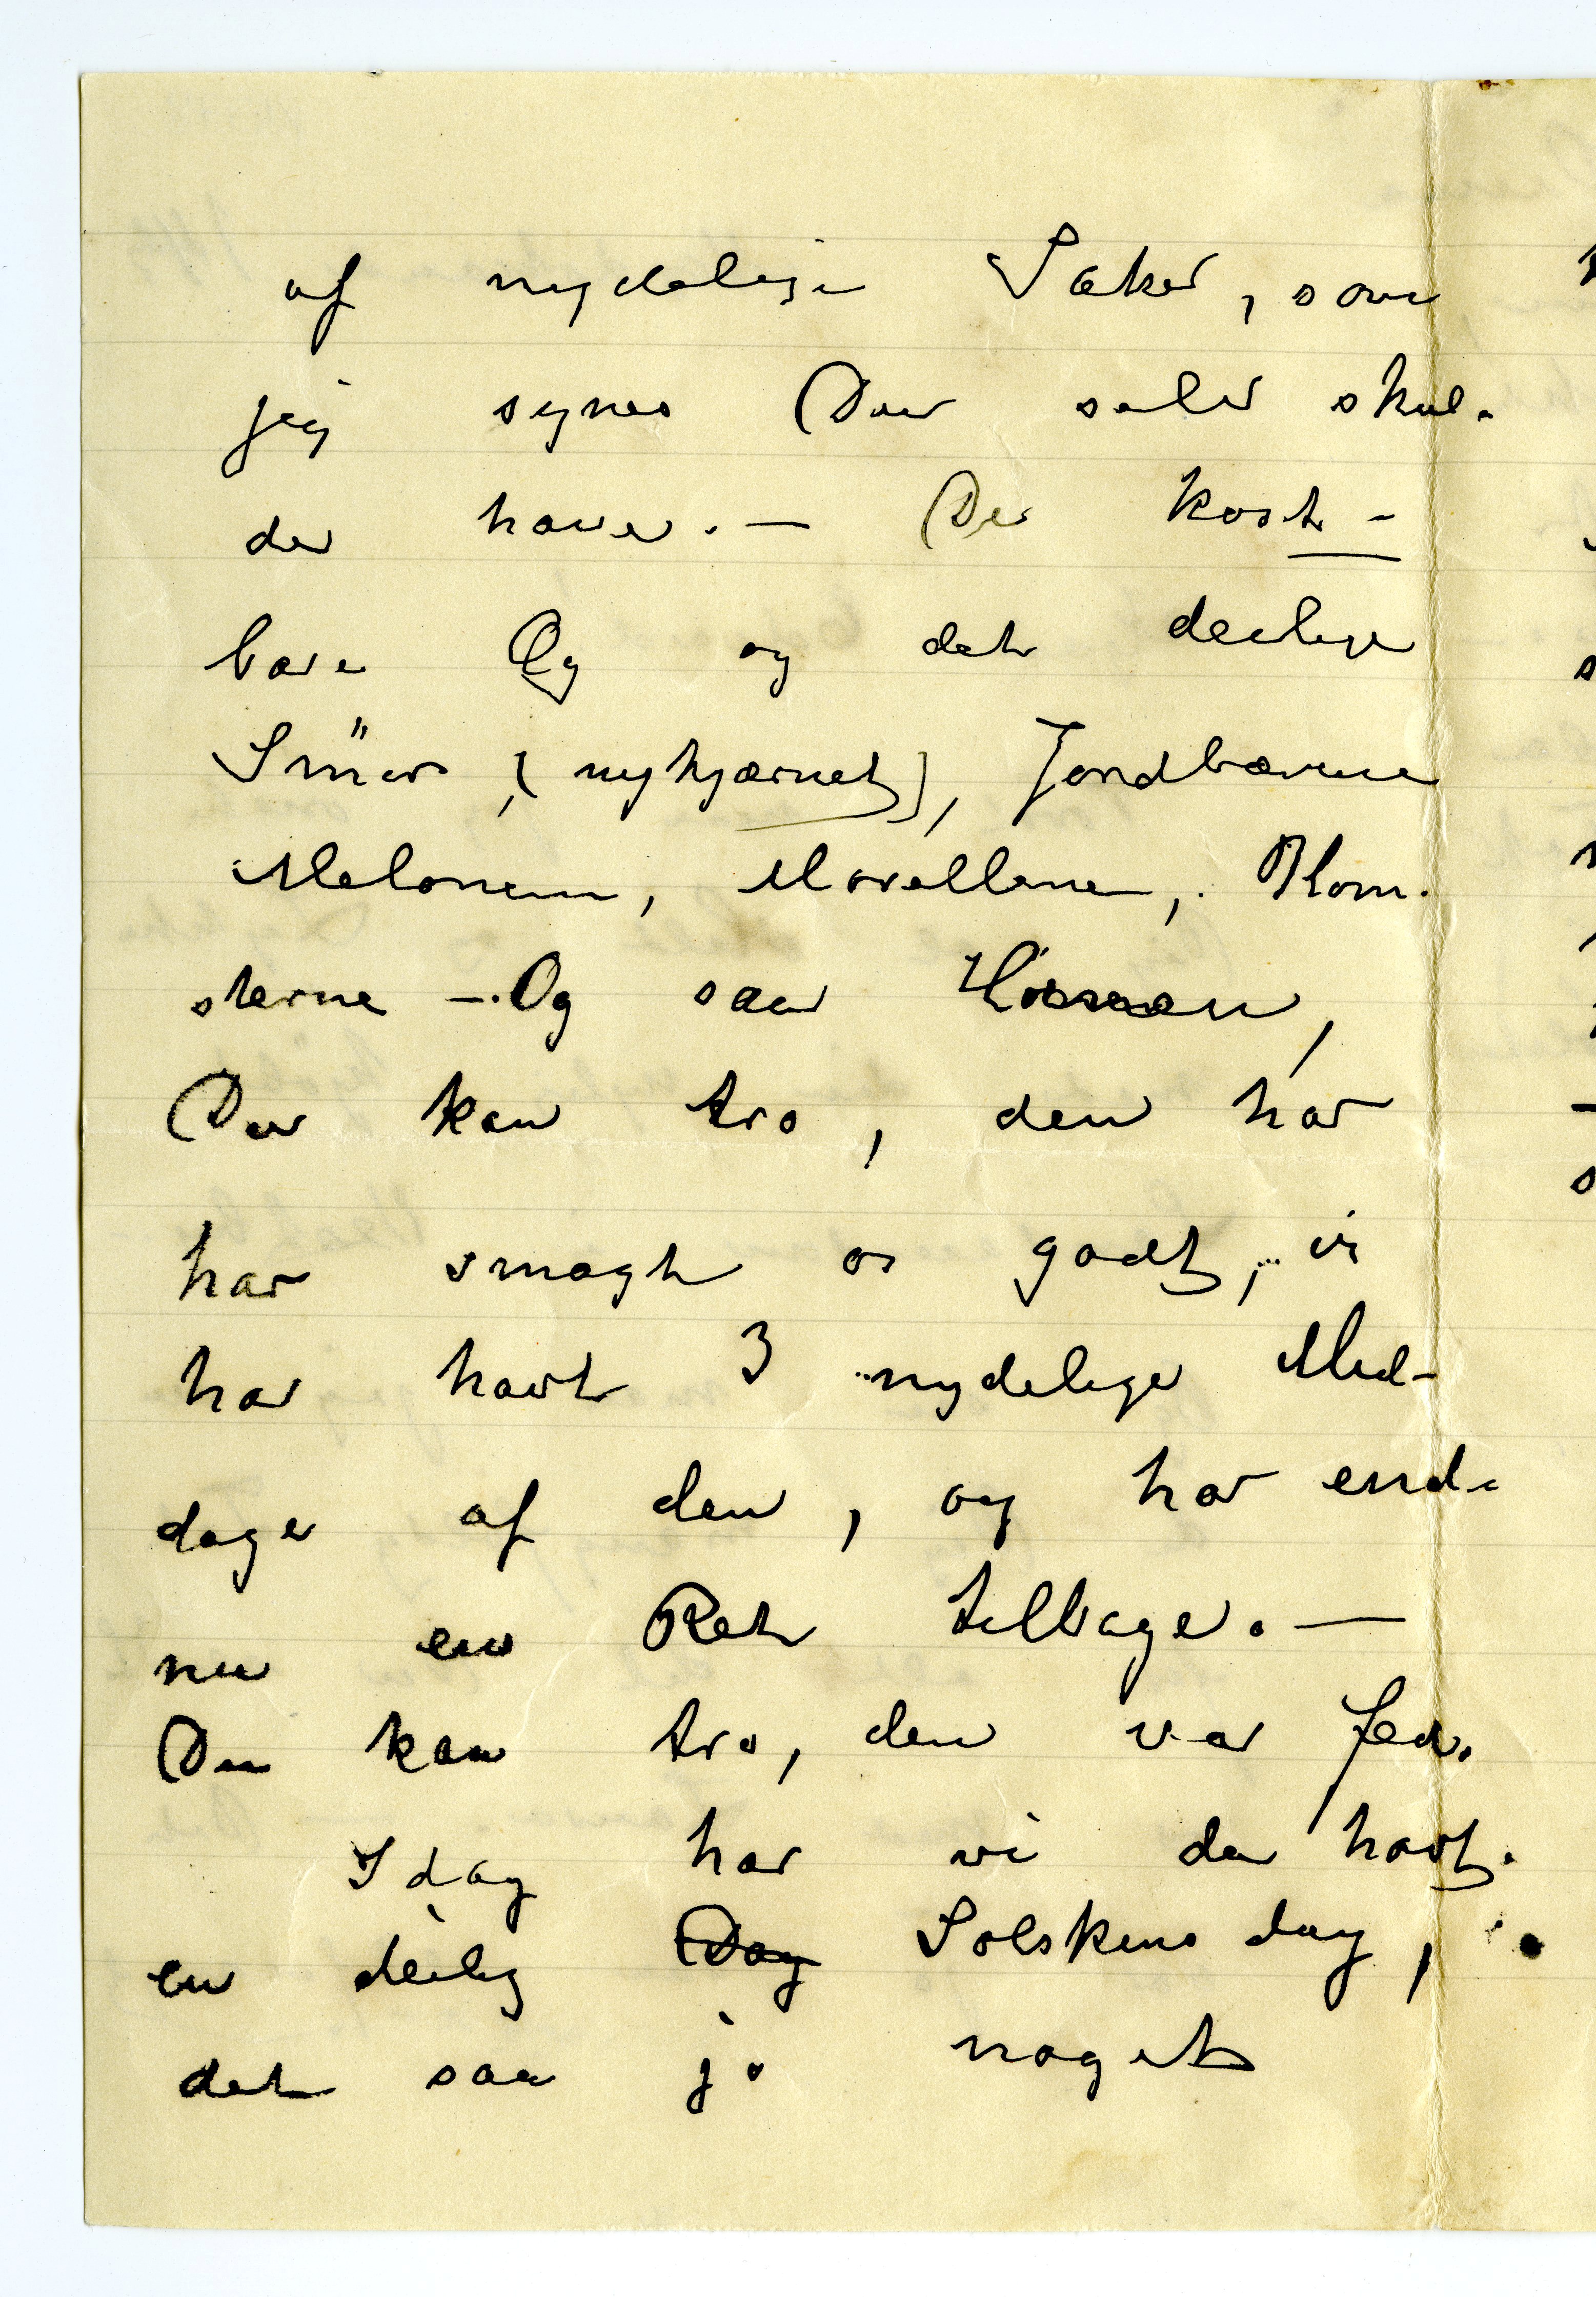 af nydelige Saker, som
jeg synes Du selv skul-
de have. — De kost-
bare Eg og det deilige
Smür (nykjærnet), Jordbærene
Melonen, Morellerne, Blom-
sterne —. Og saa Hönen,
Du kan tro, den har
har smagt os godt, vi
har havt 3 nydelige Mid-
dage af den, og har end-
nu en Ret tilbage. —
Du kan tro, den var fed.
Idag har vi da havt.
en deilig Dag Solskins dag,
det saa jo noget